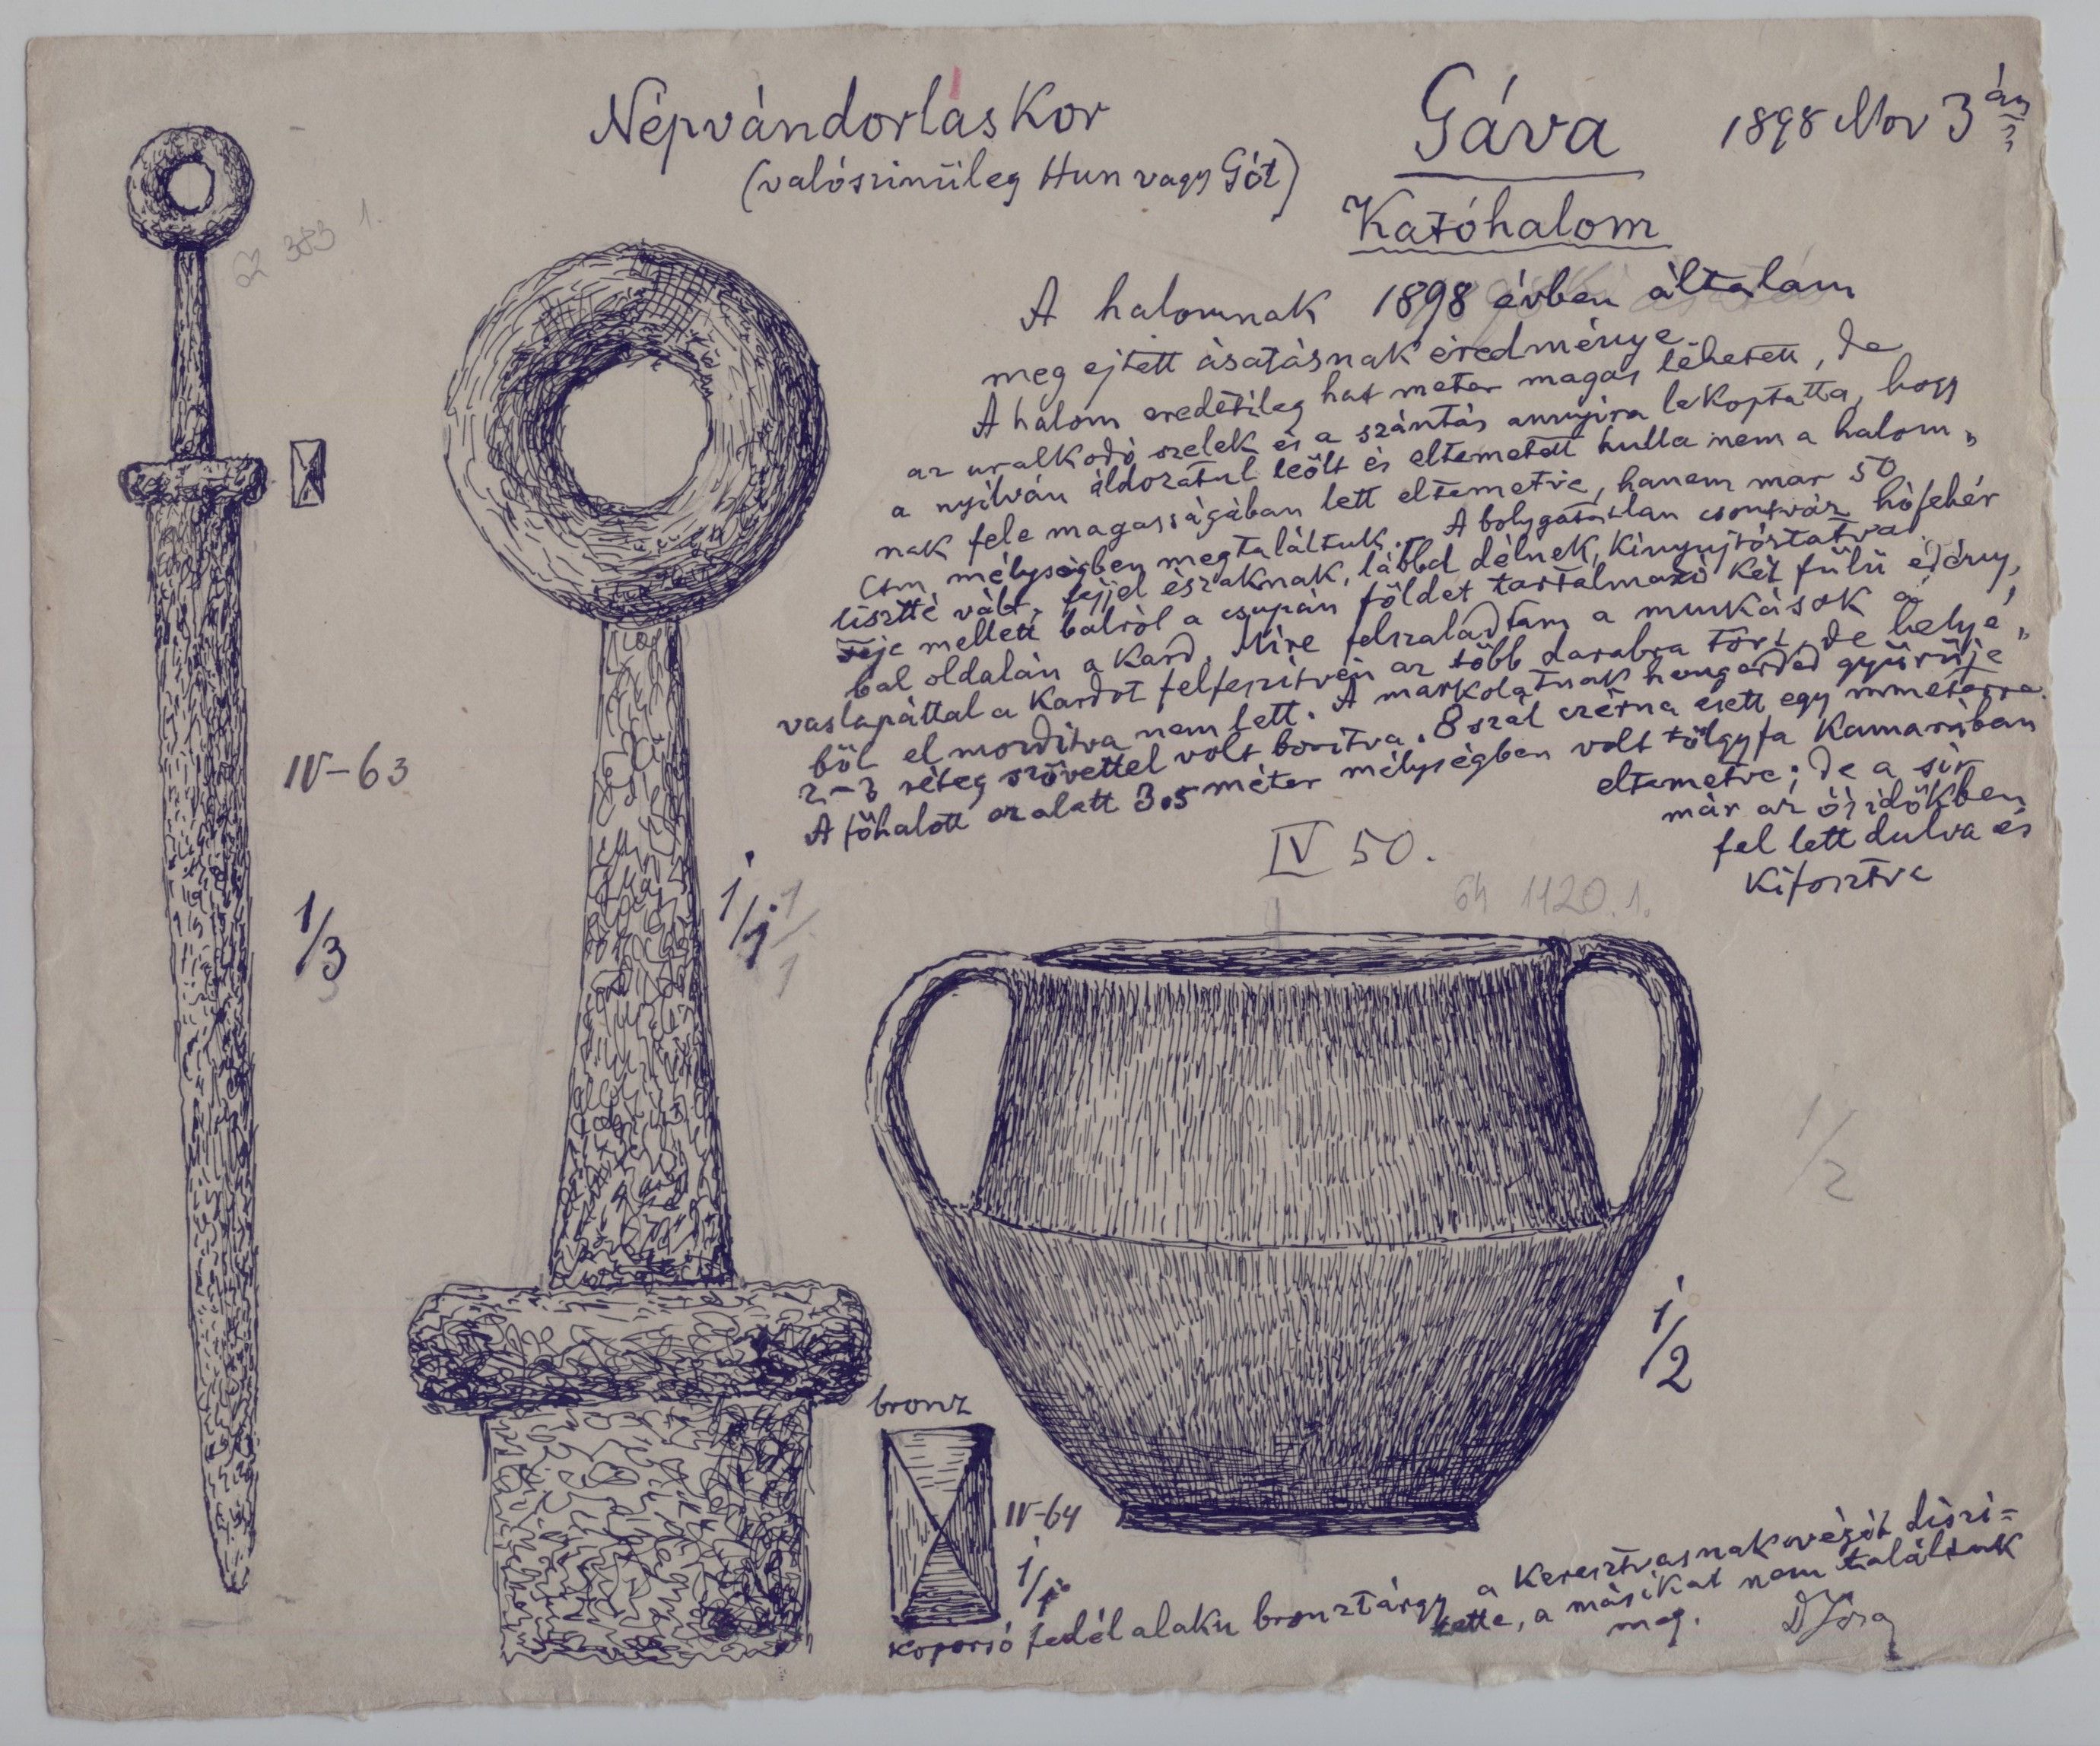 Népvándorláskor
(valószinüleg Hun vagy Gót)
Gáva
1898 Nov 3 án
Katóhalom
62 383 1.
A halomnak 1898 évben általam
meg ejtett ásatásnak eredménye
A halom eredetileg hat meter magas lehetett, de
az uralkodó szelek és a szántás annyira lekoptatta, hogy
a nyilván áldozatul leölt és eltemetett hulla nem a halom„
nak fele magasságában lett eltemetve, hanem mar 50
ctm mélységben megtaláltuk. A bolygatatlan csontváz hófehér
lisztté vált, fejjel északnak, lábbal délnek, kinyujtóztatva.
Feje mellett balról a csupán földet tartalmazó két fülü edény,
bal oldalán a Kard. Mire felszaladtam a munkások a
vaslapáttal a Kardot felfeszitvén az több darabra tört, de helyé„
ből el mozditva nem lett. A markolatnak hengerded gyürüje
2-3 réteg szövettel volt boritva. 8 szál czérna esett egy mmeterre.
A főhalott az alatt 3.5 méter mélységben volt tölgyfa Kamarában
eltemetve; de a sir
már az ősidőkben
fel lett dulva és
Kifosztva
IV-63
1/3
1/1
1/1
IV 50.
64 1120.1.
1/2
1/2
bronz
IV-64
1/1
Koporsó fedél alaku bronztárgy a Keresztvasnak végét diszi=
tette, a másikat nem találtuk
meg.
D Jósa